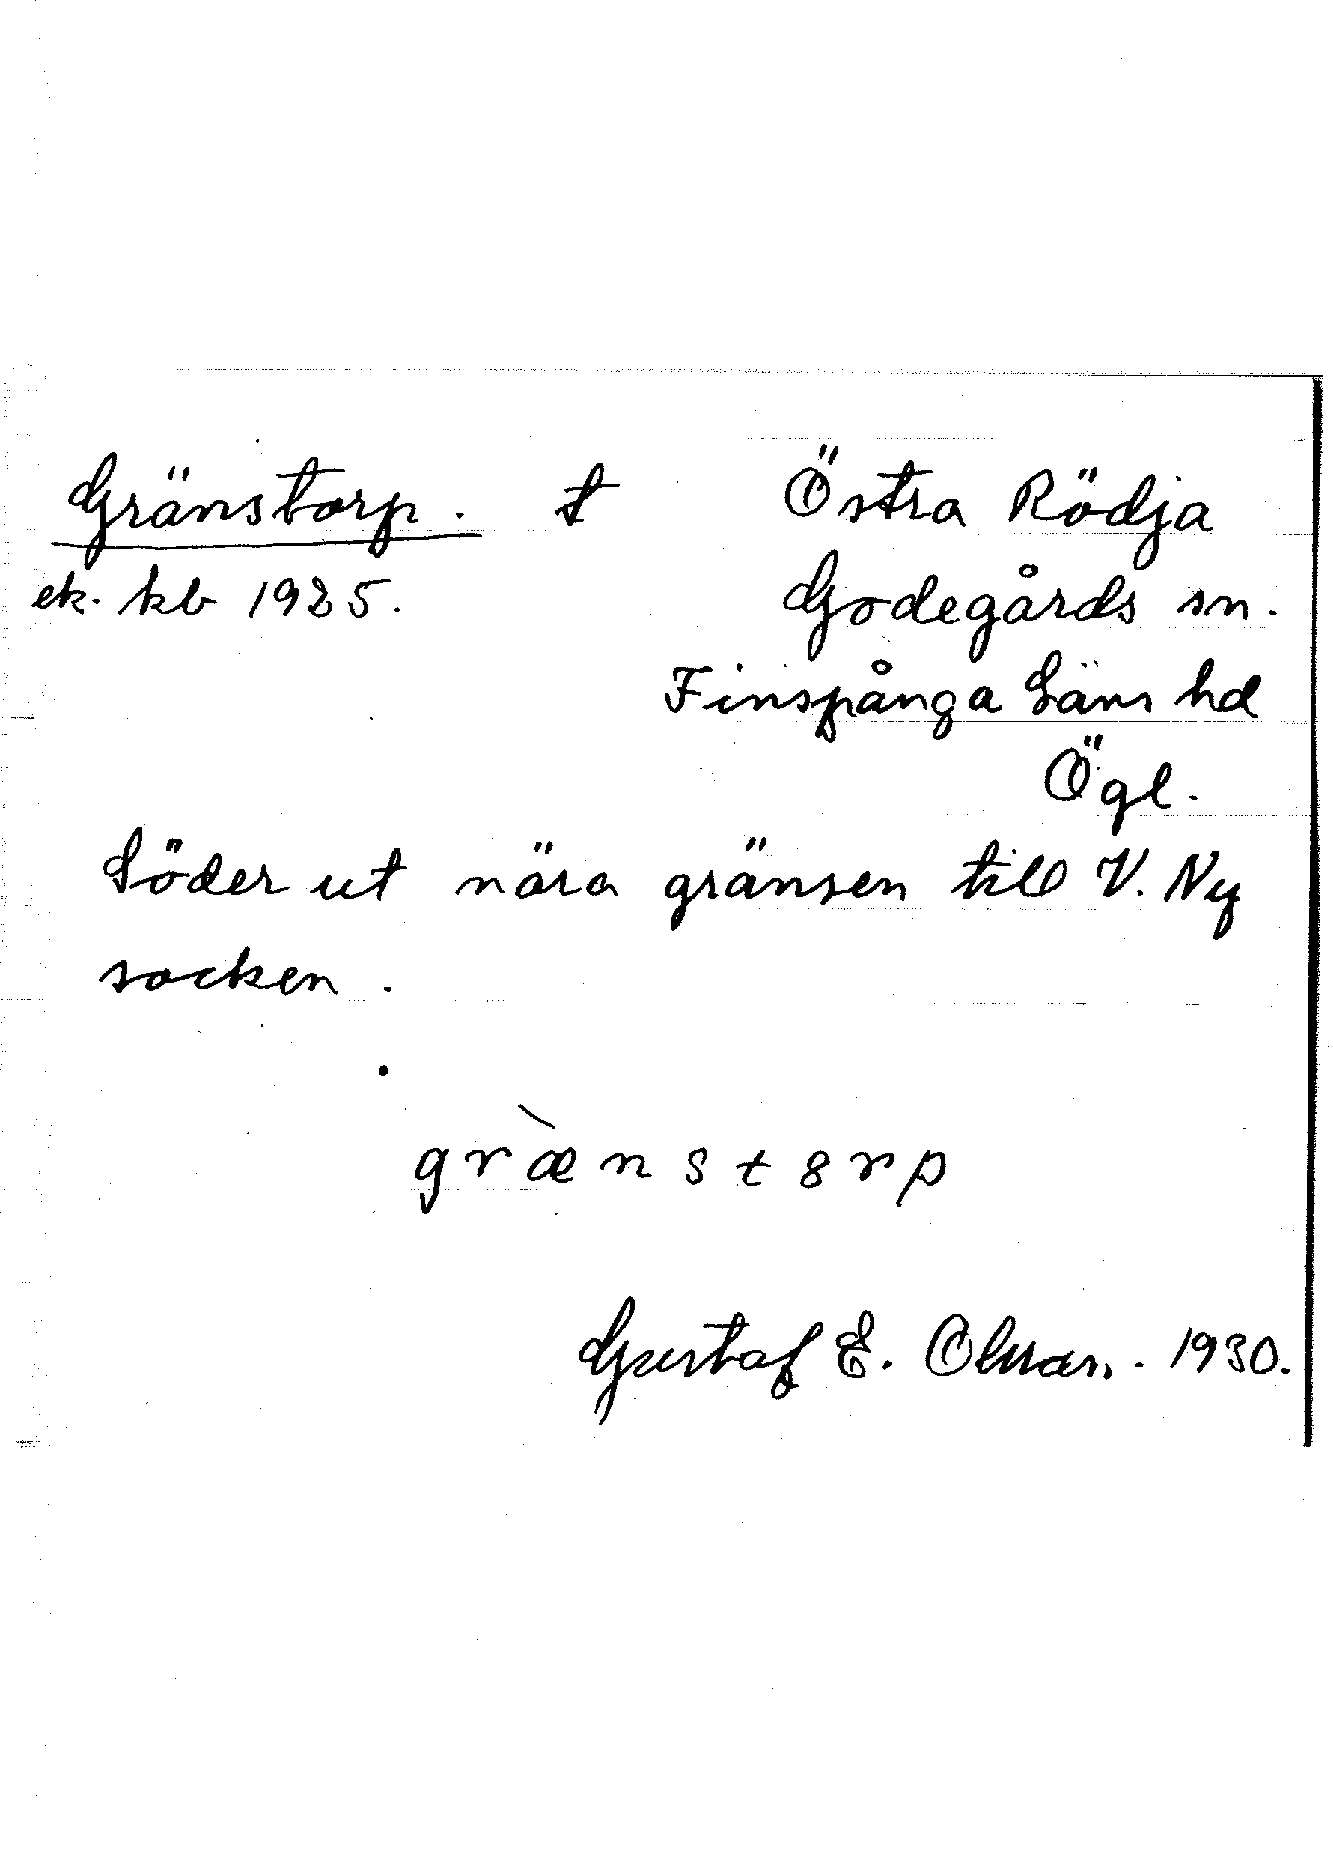 Gränstorp. t Östra Rödja
ek. kb 1925. Godegårds sn.
Finspånga Läns hd
Ögl.
Söder ut nära gränsen till V. Ny
socken.
græ̀nst8rp
Gustaf E. Olsson. 1930.